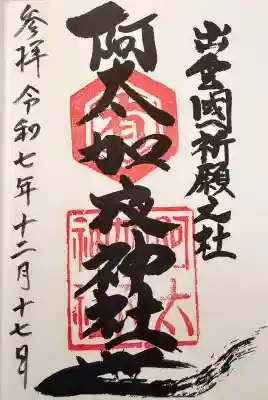 出雲國祈願之社
阿太加夜神社
参拝 令和七年十二月十七日
有